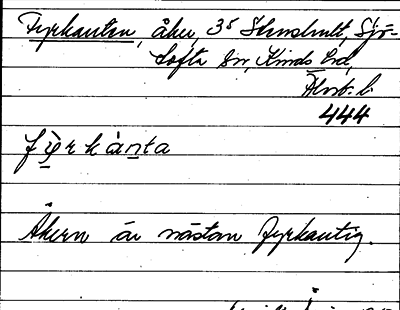 Fyrkanten, åker, 3⁵ Stenshult, Sjö-
tofta sn, Kinds hd,
Älvsb. l.
444
fy̤rkànta
Åkern är nästan fyrkantig.